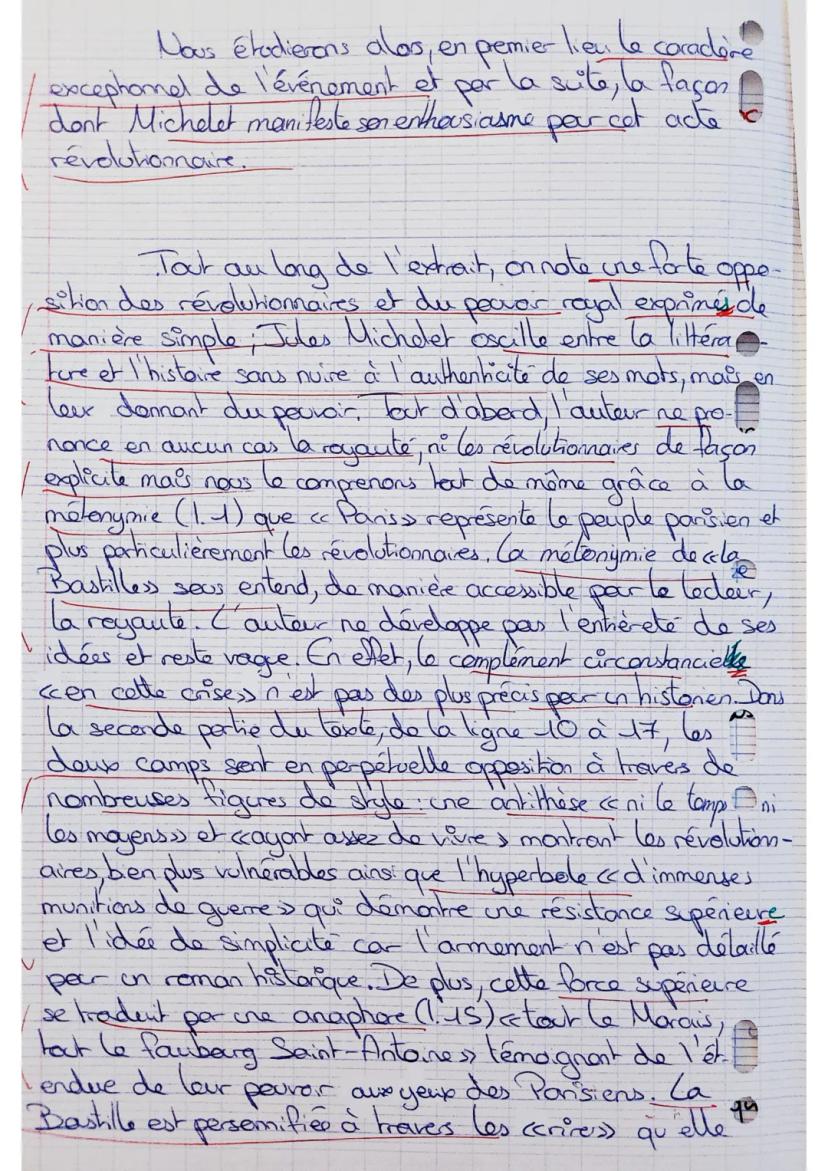 Nous étudierons alors, en premier lieu le caractère
exceptionnel de l'événement et par la suite, la façon
dont Michelet manifeste son enthousiasme pour cet acte
révolutionnaire.
Tout au long de l'extrait, on note une forte oppo-
sition des révolutionnaires et du pouvoir royal exprimés de
manière simple ; Jules Michelet oscille entre la littéra-
ture et l'histoire sans nuire à l'authenticité de ses mots, mais en
leur donnant du pouvoir. Tout d'abord, l'auteur ne pro-
nonce en aucun cas la royauté, ni les révolutionnaires de façon
explicite mais nous le comprenons tout de même grâce à la
métonymie (l.1) que « Paris » représente le peuple parisien et
plus particulièrement les révolutionnaires. La métonymie de « la
Bastille » sous entend, de manière accessible par le lecteur,
la royauté. L'auteur ne développe pas l'entièreté de ses
idées et reste vague. En effet, le complément circonstancielle
« en cette crise » n'est pas des plus précis pour un historien. Dans
la seconde partie du texte, de la ligne 10 à 17, les
deux camps sont en perpétuelle opposition à travers de
nombreuses figures de style : une antithèse « ni le temps ni
les moyens » et « ayant assez de vivre » montrant les révolution-
aires, bien plus vulnérables ainsi que l'hyperbole « d'immenses
munitions de guerre » qui démontre une résistance supérieure
et l'idée de simplicité car l'armement n'est pas détaillé
pour un roman historique. De plus, cette force supérieure
se traduit par une anaphore (l.15) « tout le Marais,
tout le faubourg Saint-Antoine » témoignant de l'ét-
endue de leur pouvoir aux yeux des Parisiens. La
Bastille est personnifiée à travers les « crires » qu'elle